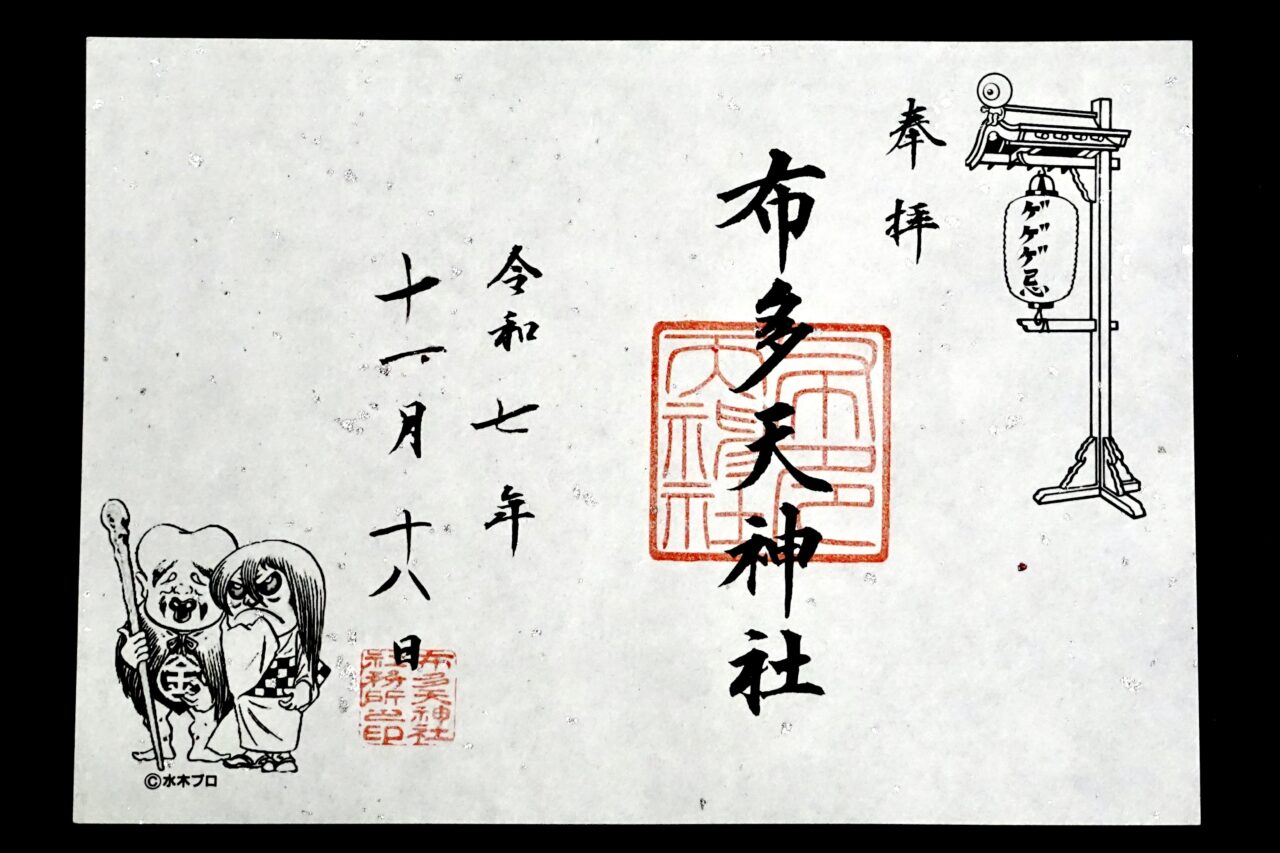 奉拝
ゲゲゲ忌
布多天神社
布多天神社
令和七年
十一月十八日
布多天神社
社務所之印
金
©水木プロ